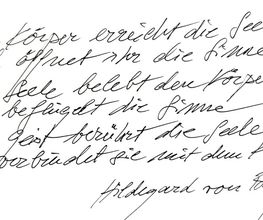 Körper erreicht die Seele
öffnet ihr die Sinne
Seele belebt den Körper
beflügelt die Sinne
Geist berührt die Seele
verbindet sie mit dem
Hildegard von